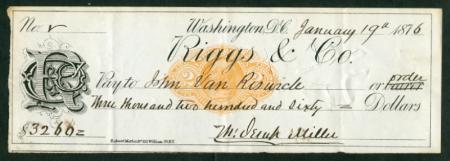 No. Washington D.C. January 19th 1876
Riggs & Co.
Pay to John Van Riswick or order
Three thousand two hundred and sixty Dollars
$3260= Th: Miller